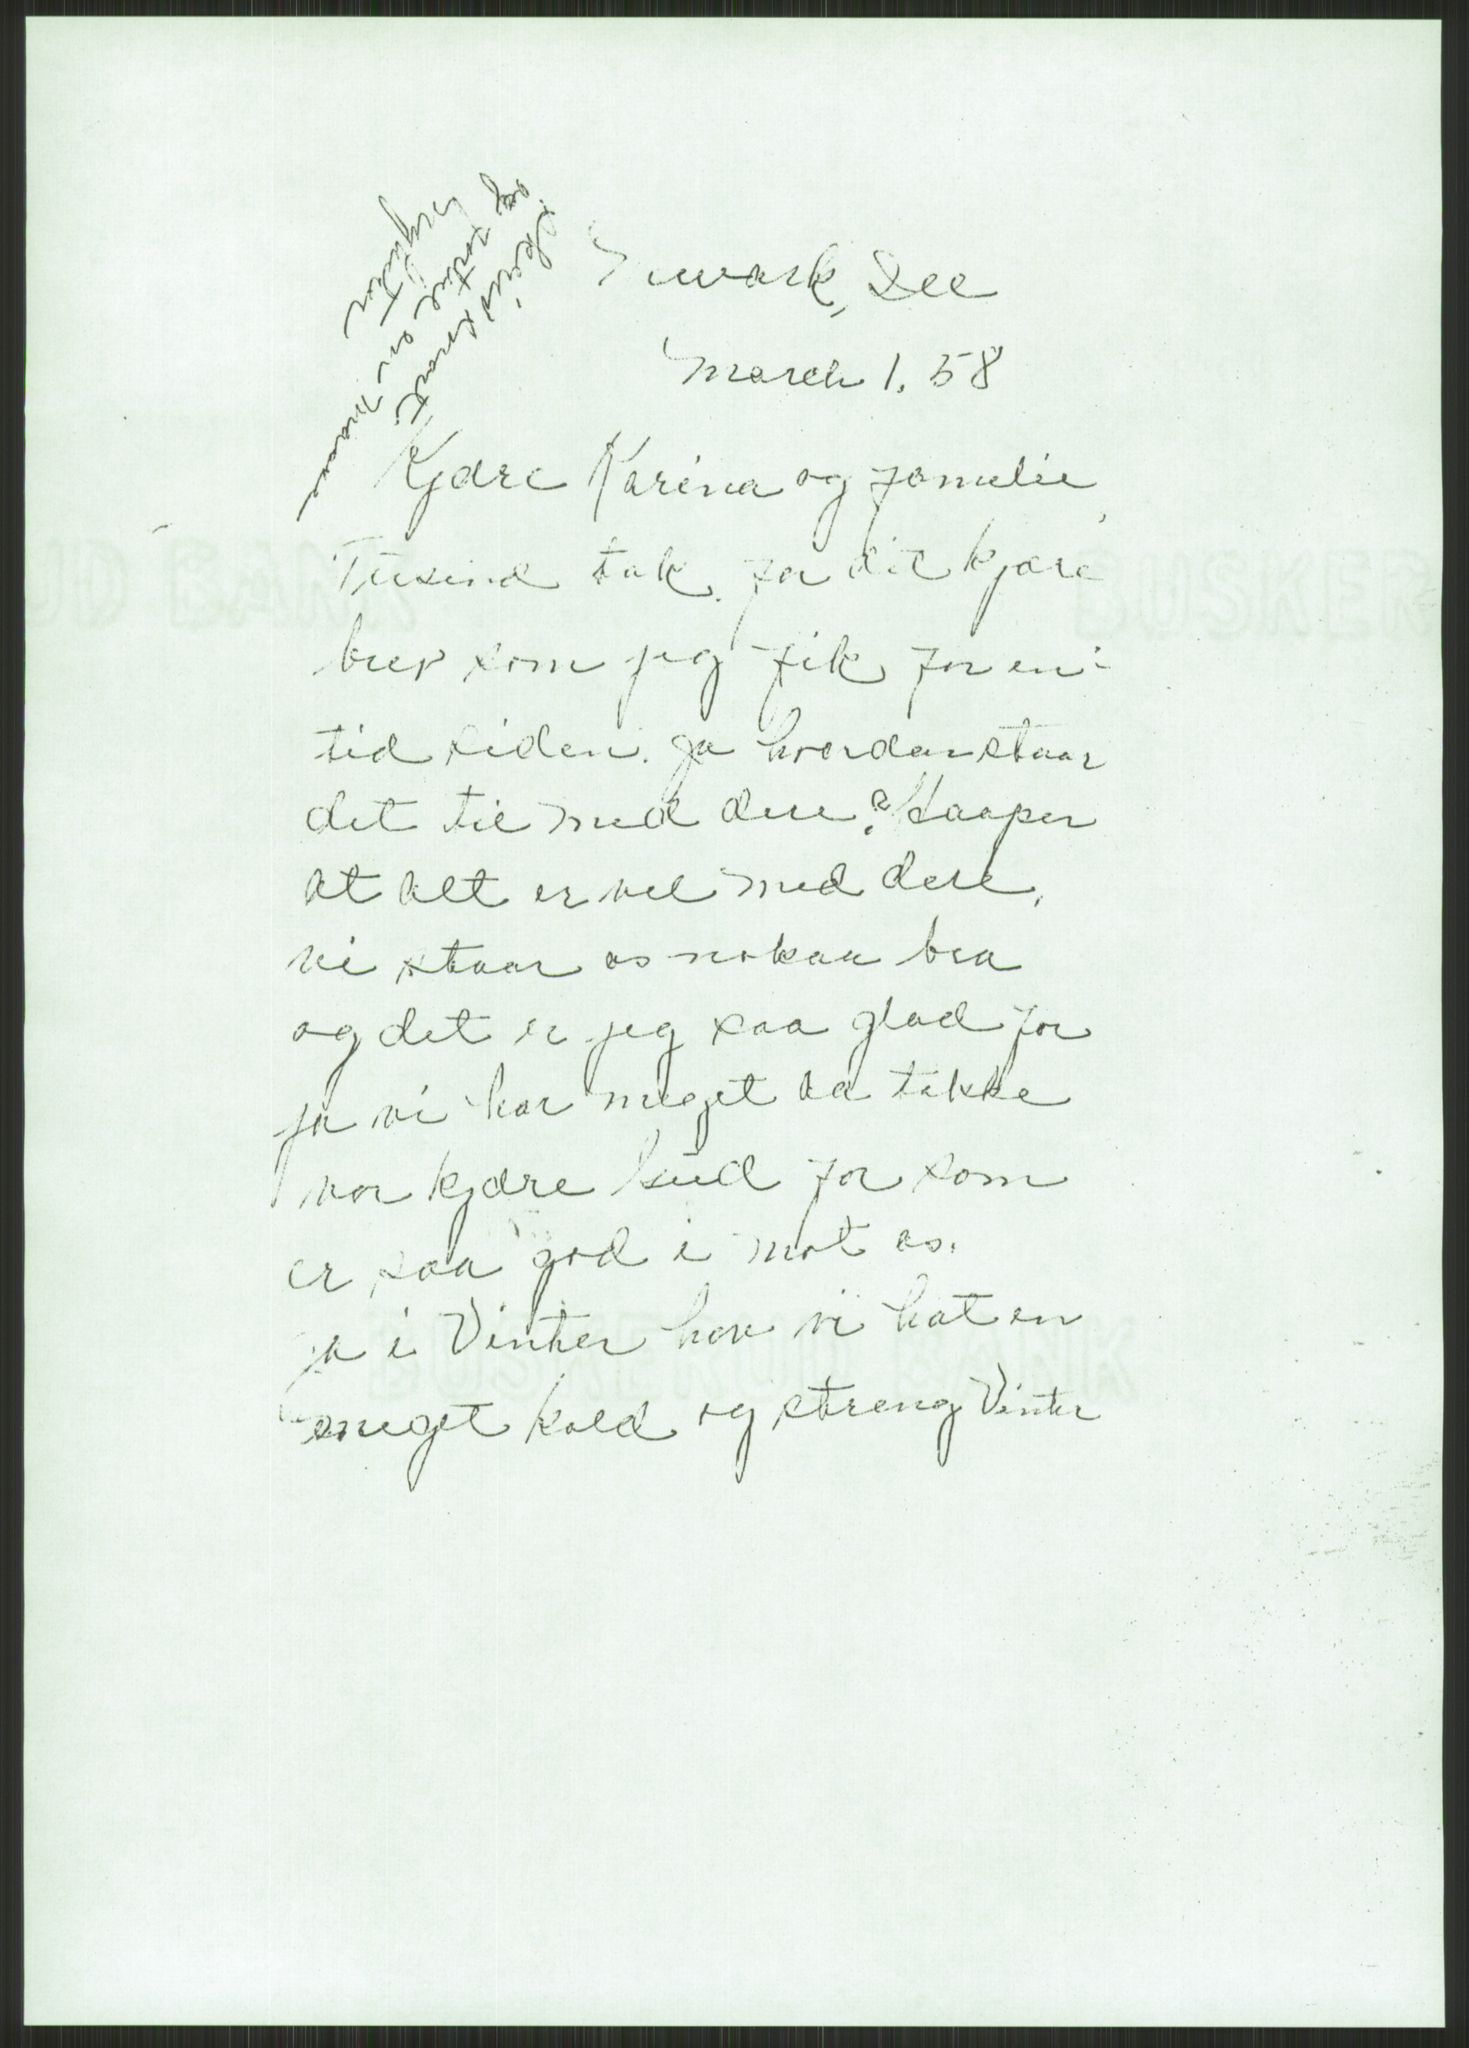 Newark, Del
March 1. 58
Kjære Karina og familie,
Tusend tak for dit kjære
brev som jeg fik for en
tid siden. Ja hvordan staar
det til med dere? Haaper
at alt er vel med dere.
vi staar os nokaa bra
og det er jeg saa glad for
ja vi har meget aa takke
vor kjære Gud for som
er saa god i mot os.
ja i Vinter have vi hat en
meget kold og streng Vinter
skriv snart
og fortel om
nyheter
BUSKERUD BANK